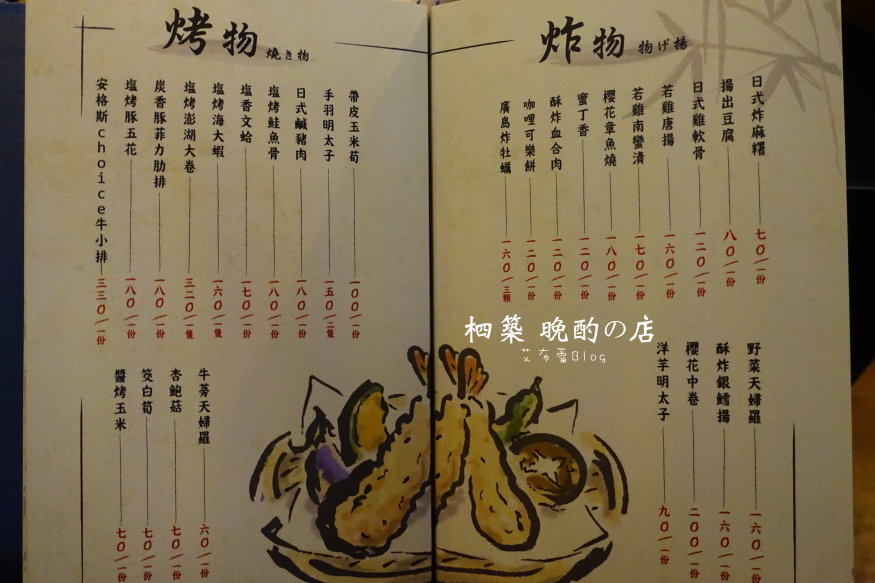 炸物 物げ揚
日式炸麻糬 七〇/一份
揚出豆腐 八〇/一份
日式雞軟骨 一二〇/一份
若雞唐揚 一六〇/一份
若雞南蠻漬 一七〇/一份
櫻花章魚燒 一八〇/一份
蜜丁香 一二〇/一份
酥炸血合肉 一二〇/一份
咖哩可樂餅 一二〇/一份
廣島炸牡蠣 一六〇/三顆
野菜天婦羅 一六〇/一份
酥炸銀鱈揚 一六〇/一份
櫻花中卷 二〇〇/一份
洋芋明太子 九〇/一份
烤物 燒き物
帶皮玉米荀 一〇〇/一份
手羽明太子 一五〇/二隻
日式鹹豬肉 一八〇/一份
塩烤鮭魚骨 一八〇/一份
塩香文蛤 一七〇/一份
塩烤海大蝦 一六〇/一隻
塩烤澎湖大卷 三二〇/一隻
炭香豚菲力肋排 一八〇/一份
塩烤豚五花 一八〇/一份
安格斯choice牛小排 三三〇/一份
牛蒡天婦羅 六〇/一份
杏鮑菇 七〇/一份
筊白筍 七〇/一份
醬烤玉米 七〇/一份
柶築 晚酌の店
艾布蕾Blog